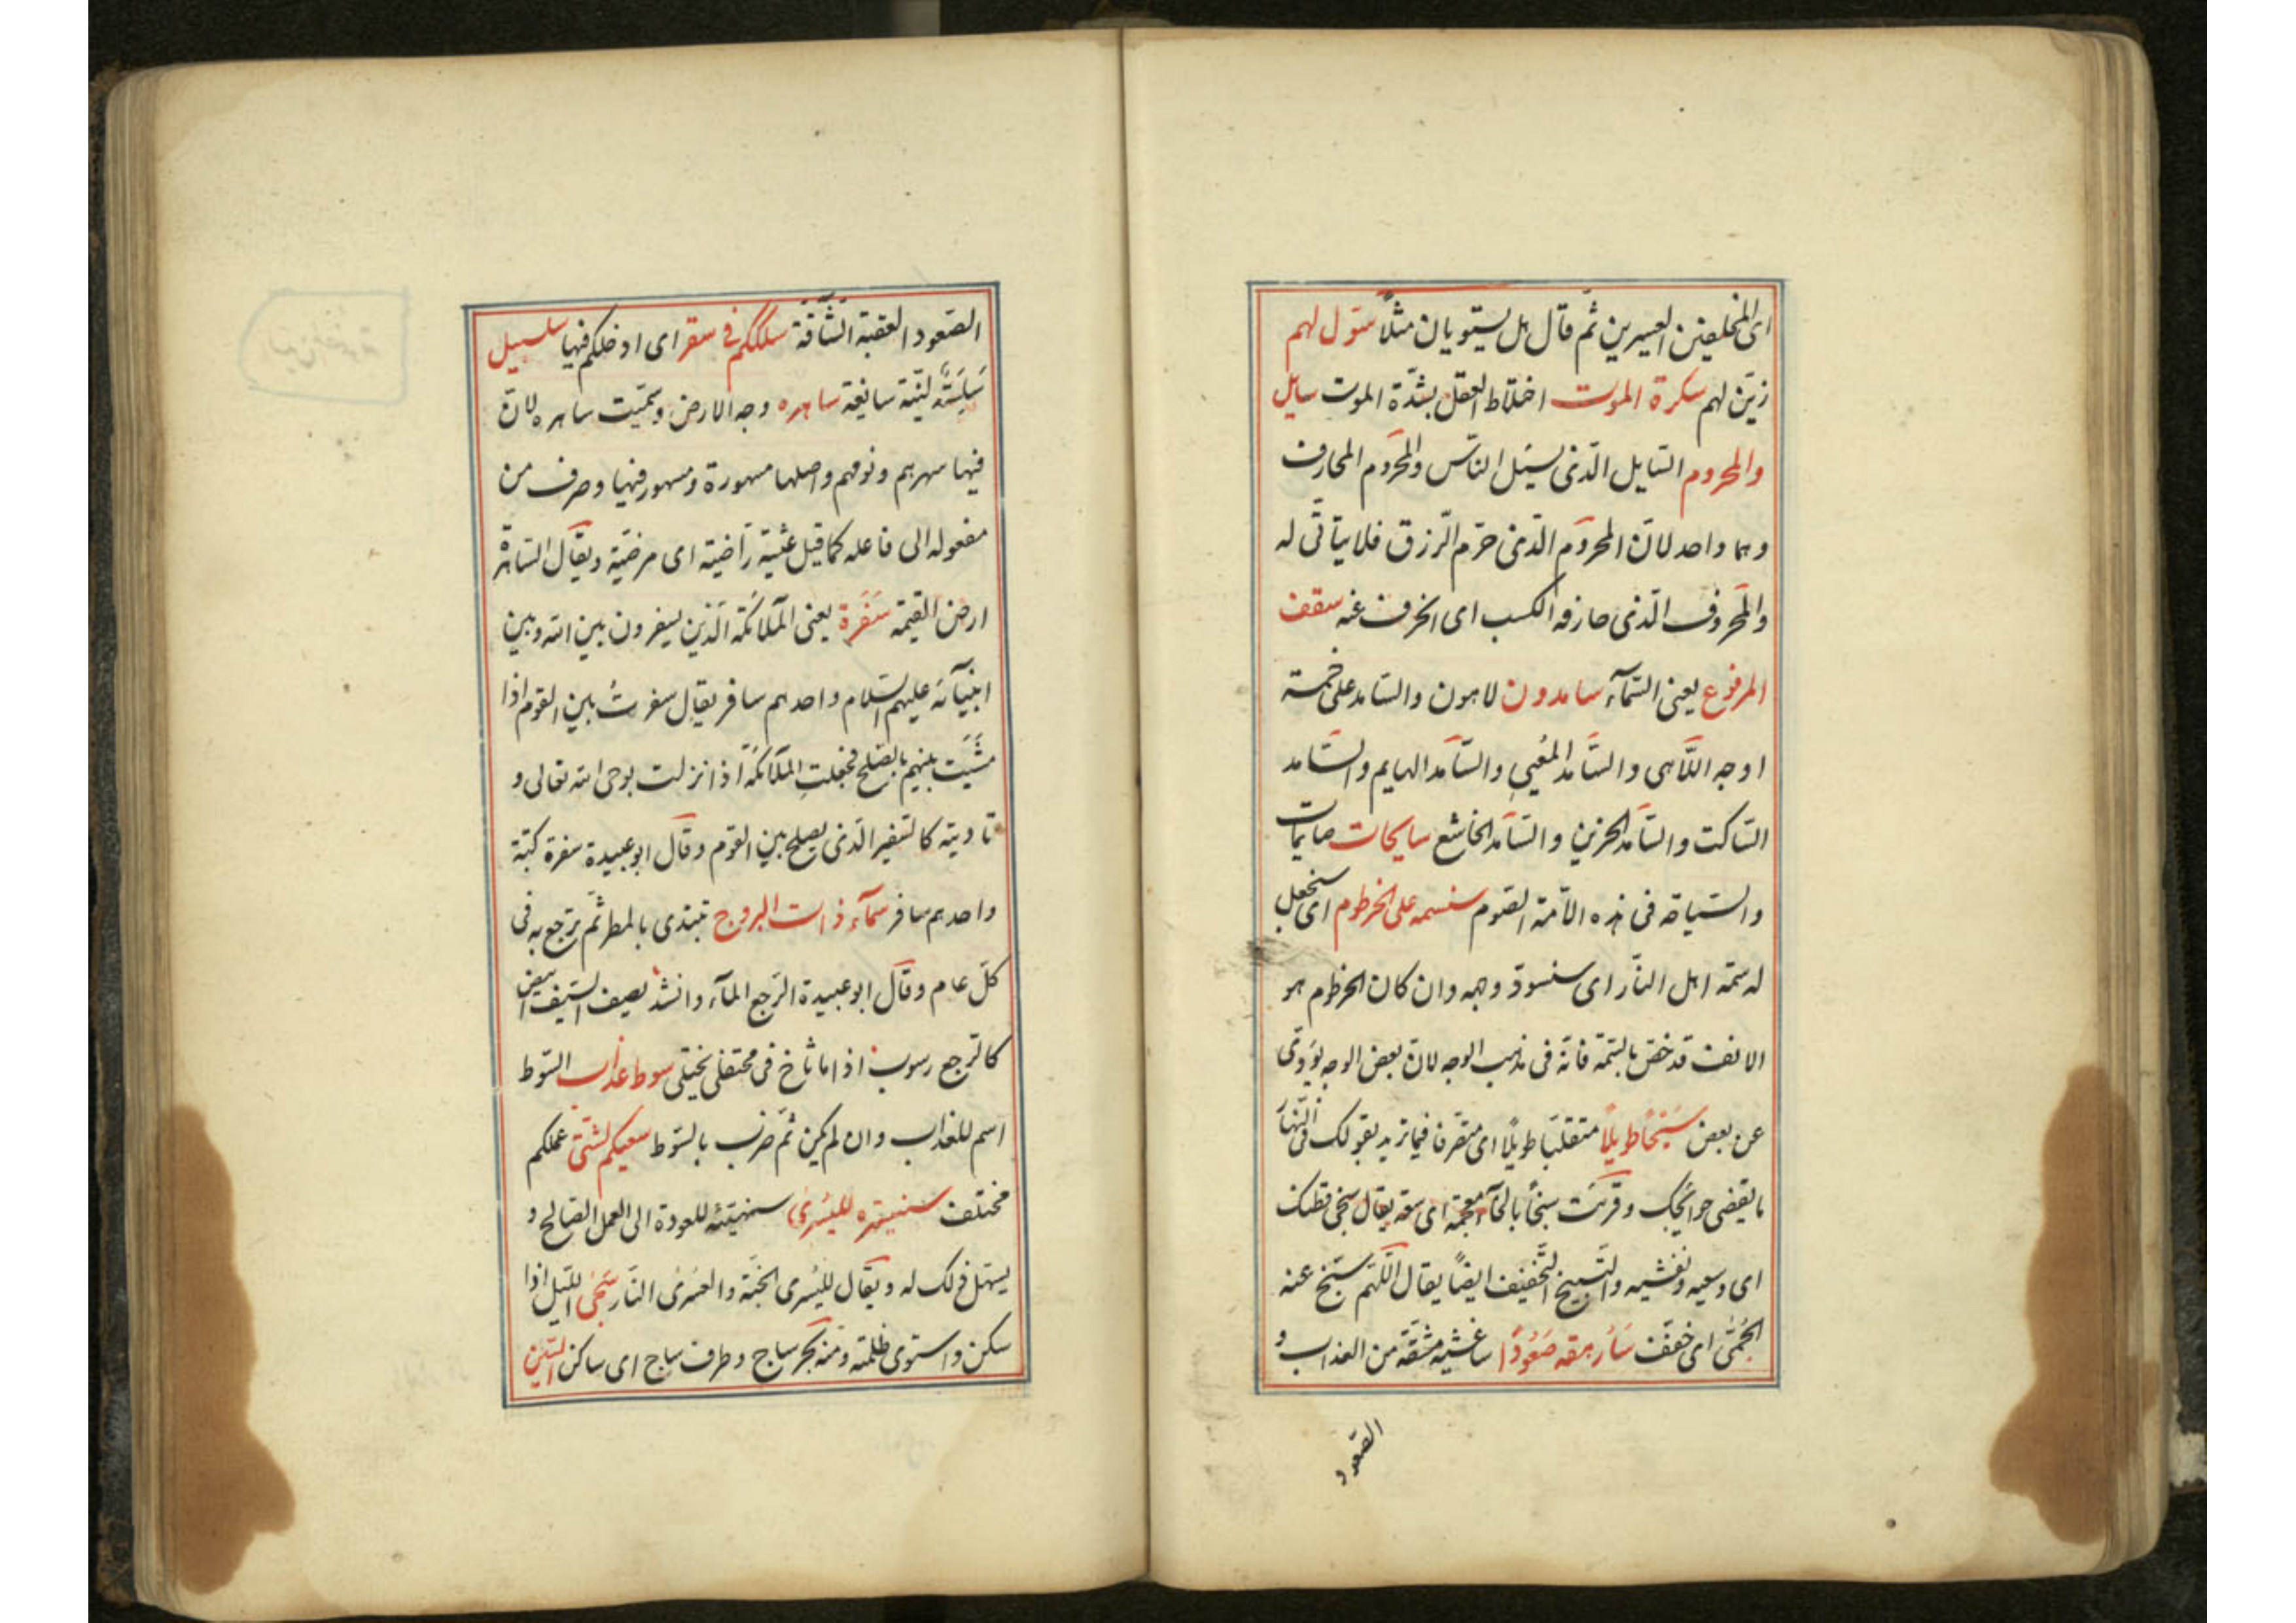 اى المختلفين العسيرين ثمّ قال هل يستويان مثلاً سوّل لهم
زيّن لهم سكرة الموت اختلاط العقل بشدّة الموت سايل
والمحروم السّايل الّذى يسئل النّاس والمحروم المحارف
وهما واحد لانّ المحروم الّذى حرّم الرّزق فلا يتأتّى له
والمحروف الّذى حارفه الكسب اى انحرف عنه سقف
المرفوع يعنى السّمآء سامدون لاهون والسّامد على خمسة
اوجه اللّاهى والسّامد المغنى والسّامد الهايم والسّامد
السّاكت والسّامد الحزين والسّامد الخاشع سايحات صايمات
والسّياحة فى هذه الامّة الصّوم سنسمه على الخرطوم اى سنجعل
له سمة اهل النّار اى سنسوّد وجهه وان كان الخرطوم هو
الانف قد خصّ بالسّمة فانّه فى مذهب الوجه لانّ بعض الوجه يؤدّى
عن بعض سَبْحًا طويلاً متقلّبًا طويلاً اى متصرّفا فيما تريد يقول لك فى النّهار
ما يقضى حوائجك وقرئت سبخًا بالخآء معجمة اى سعة يقال سبّخى قطنك
اى وسّعيه ونفّشيه والتّسبيخ التّخفيف ايضًا يقال اللّهمّ سبّخ عنه
الحُمّى اى خفّف سَأُرهقه صَعُودًا ساغشيه مشقّة من العذاب و
الصّعود
الصّعود العقبة الشّاقّة سلككم فى سقر اى ادخلكم فيها سلسبيل
سَلِسَة ليّنة سايغة ساهره وجه الارض وسمّيت ساهره لانّ
فيها سهرهم ونومهم واصلها مسهورة ومسهور فيها وصرف من
مفعوله الى فاعله كما قيل عيشة راضية اى مرضيّة ويقال السّاهرة
ارض القيمة سَفَرَة يعنى الملآئكة الّذين يسفرون بين الله وبين
انبيآئه عليهم السّلام واحدهم سافر يقال سفرت بين القوم اذا
مشيت بينهم بالصّلح فجعلت الملآئكة اذا نزلت بوحى الله تعالى و
تاديته كالسّفير الّذى يصلح بين القوم وقال ابو عبيدة سفرة كتبة
واحدهم سافر سمآء ذات البروج تبتدى بالمطر ثمّ ترجع به فى
كلّ عام وقال ابو عبيدة الرّجع المآء وانشد يصف السّيف ابيض
كالرّجع رسوب اذا ما ثاخ فى محتفل يختلى سوط عذاب السّوط
اسم للعذاب وان لم يكن ثمّ ضرب بالسّوط سعيكم لشتّى عملكم
مختلف سنيسّره لليُسرى سنهيّئه للعودة الى العمل الصّالح و
يسهّل ذلك له ويقال لليُسرى الجنّة والعُسرى النّار سَجَى اللّيل اذا
سكن واستوى ظلمته ومنه بحر ساج وطرف ساج اى ساكن السّنين